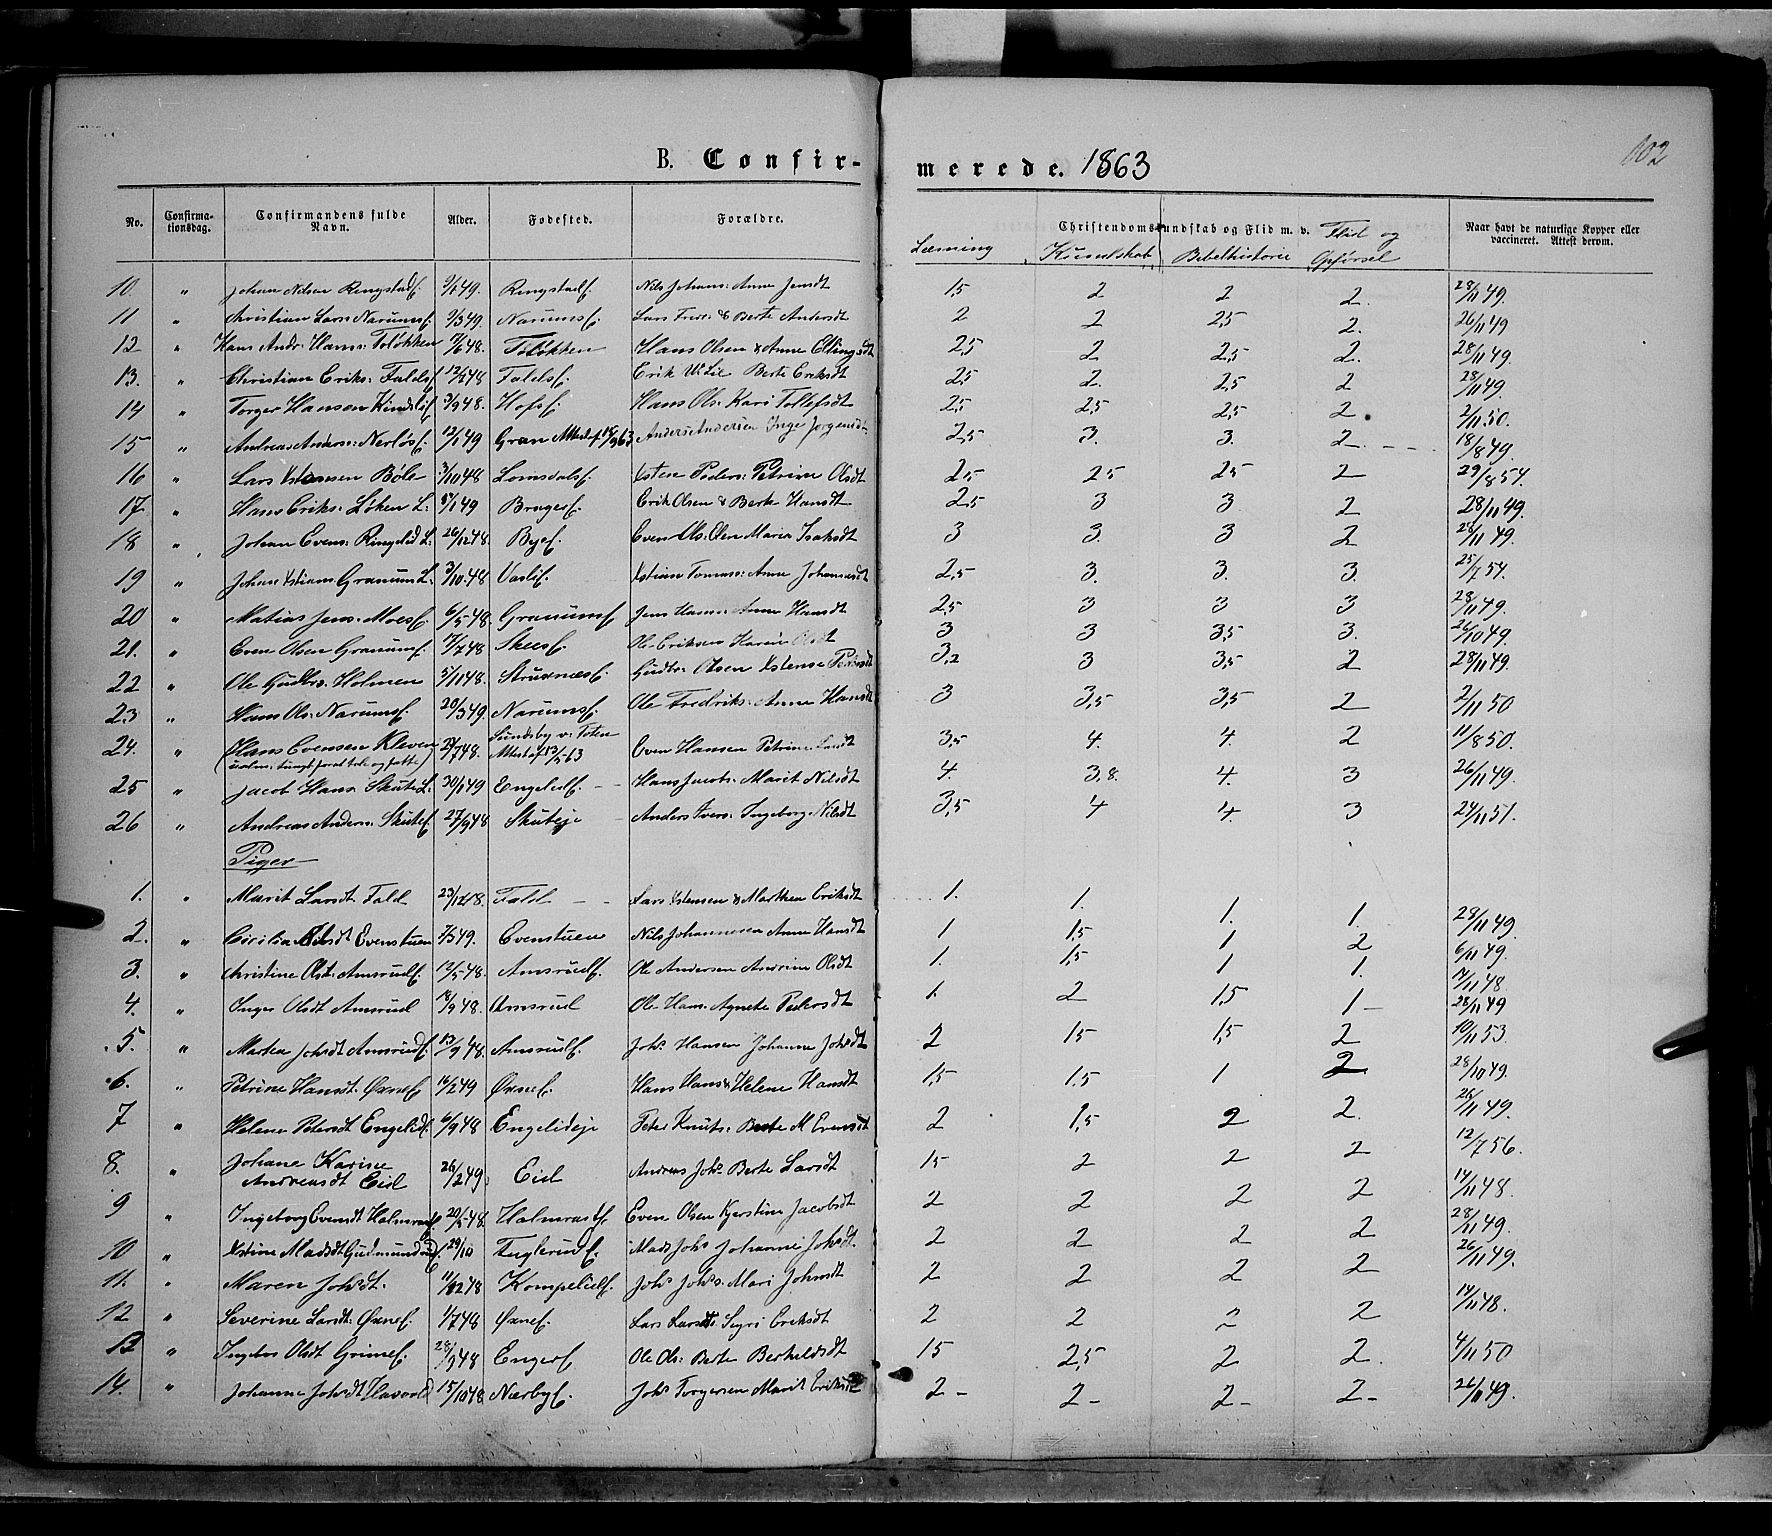 B. Confir-
merede. 1863
102
No. Confirma-tionsdag. Confirmandens fulde Navn. Alder. Fødested. Forældre. Christendomskundskab og Flid m. v. Naar havt de naturlige Kopper eller vaccineret. Attest derom.
Læsning Kundskab Bibelhistorie Flid og Opførsel
10. " Johan Nilsen Ringstadf. 49. Ringstadf. Nils Johans: Anne Jensdt 1,5 2 2 2. 28/11 49.
11 " Christian Lars: Narumsf. 49. Narumsf. Lars Fredr: & Berte Andersdt 2 2 2,5 2. 26/11 49
12 " Hans Andr: Hans: Toløkken 7/6 48. Toløkken Hans Olsen & Anne Ellingsdt 2,5 2 2,5 2. 28/11 49.
13. " Christian Eriks: Faldsf. 12/2 48 Faldsf. Erik Berte Eriksdt 2,5 2. 2,5 2 28/11 49.
14 " Torger Hansen 3/9 48. Hofsf. Hans Ols: Kari Tollefsdt 2,5 2,5 2,5 2 2/11 50.
15 " Andreas Anders: 12/1 49 Gran Attest af 18/9 63 Anders Andersen Inge Jørgensdt 2,5 3. 3. 2. 18/8 49.
16 " Lars Xstensen Bøle 3/10 48 Lomsdalsf. Xsten Peders: Petrine Olsdt 2,5 2,5 2,5 2 29/8 54.
17. " Hans Eriks: Løken L: 5/1 49 Brugesf. Erik Olsen & Berte Hansdt 2,5 3 3. 2 28/11 49.
18 " Johan Evens: Ringelid L: 26/12 48. Byef. Even Ols: Maria Isaksdt 3 3. 3 2 28/11 49.
19 " Johan Xstians Granum L: 3/10 48 Xstian Tomas: Anne Johannesdt 2,5 3. 3. 3. 25/7 54.
20 " Matias Jens: Moesf. 6/5 48. Granumsf. Jens Hans: Anne Hansdt 2,5 3 3 3 28/11 49.
21. " Even Olsen Granumf. 7/7 48 Skeesf. Ole Eriksen Karine Olsdt 3 3 3,5 3. 26/10 49.
22 " Ole Gudbr: Holmen 5/11 48. Struxnæsf. Gudbr: Olsen Xstense Pedersdt 3,2 3 3,5 2 28/11 49.
23 " Hans Ols: Narumsf. 20/3 49. Narumsf. Ole Fredriks: Anne Hansdt 3 3,5 3,5 2 2/11 50
24. " Hans Evensen Kleven 27/7 48. Sundsby v: Toten Attest af 13/5 63 Even Hansen Petrine Larsdt 3,5 4. 4. 2 11/8 50.
25 " Jacob Hans: Skute L: 30/1 49 Engelidf. Hans Jacobs: Marit Nilsdt 4. 3.8. 4. 3 26/11 49.
26 " Andreas Anders: Skutef. 27/9 48 Skuteje Anders Ivers: Ingeborg Nilsdt 3,5 4 4. 3 24/11 51.
Piger
1. " Marit Larsdt Fald 23/12 48. Fald Lars Xstensen & Marthea Eriksdt 1. 1. 1. 1. 28/11 49.
2. " Cicilia Nilsdt Evenstuen 7/3 49. Evenstuen Nils Johannesen Anne Hansdt 1 1,5 1 2 6/11 49.
3. " Christine Olsdt Amsrudf. 12/5 48. Amsrudf. Ole Andersen Andrine Olsdt 1. 1,5 1 1. 7/11 48.
4. " Inger Olsdt Amsrud 18/9 48. Amsrud Ole Hans: Agnete Pedersdt 1. 2 1,5 1 28/11 49
5. " Marten Johsdt Amsrudf. 13/9 48. Amsrudf. Johs Hansen Johanne Johsdt 2 1,5 1,5 2 10/11 53.
6. " Petrine Hansdt. Øxnef. 16/2 49 Øxnef. Hans Hans: Helene Hansdt 1,5 1.5 1 2. 28/10 49.
7 " Helene Petersdt Engelidf. 6/9 48 Engelideje Peter Knuts: Berte M Evensdt 2 1,5 2 2. 28/11 49.
8. " Johane Karine Andreasdt Eid 26/2 49. Eid Andreas Johs Berte Larsdt 1,5 2 2 2 12/7 56.
9 " Ingeborg Evensdt Holmrastf. 20/5 48. Holmrastf. Even Olsen Kjerstine Jacobsdt 2 2 2 2 14/11 48.
10 " Xstine Madsdt Gudmundsrudf. 29/10 Fuglerudf. Mads Johs Johanne Johsdt. 2 2 2 2 28/11 49.
11. " Maren Johsdt. 11/12 48 Kompelidf. Johs Johs: Mari Johnsdt 2 2 2 2 26/11 49.
12 " Severine Larsdt. Øxnef. 1/7 48 Øxnef. Lars Lars: Sigri Eriksdt 2 2 2 2 14/11 48.
13 " Ingebor Olsdt Grimef. 28/9 48 Engerf. Ole Ols: Berte Bertheldsdt 1,5 2,5 2 2. 4/11 50
14. " Johanne Johsdt Hasvold 15/10 48 Nærbyf. Johs Torgersen Marit Eriksdt 2 - 2 - 2 - 2 - 26/11 49.